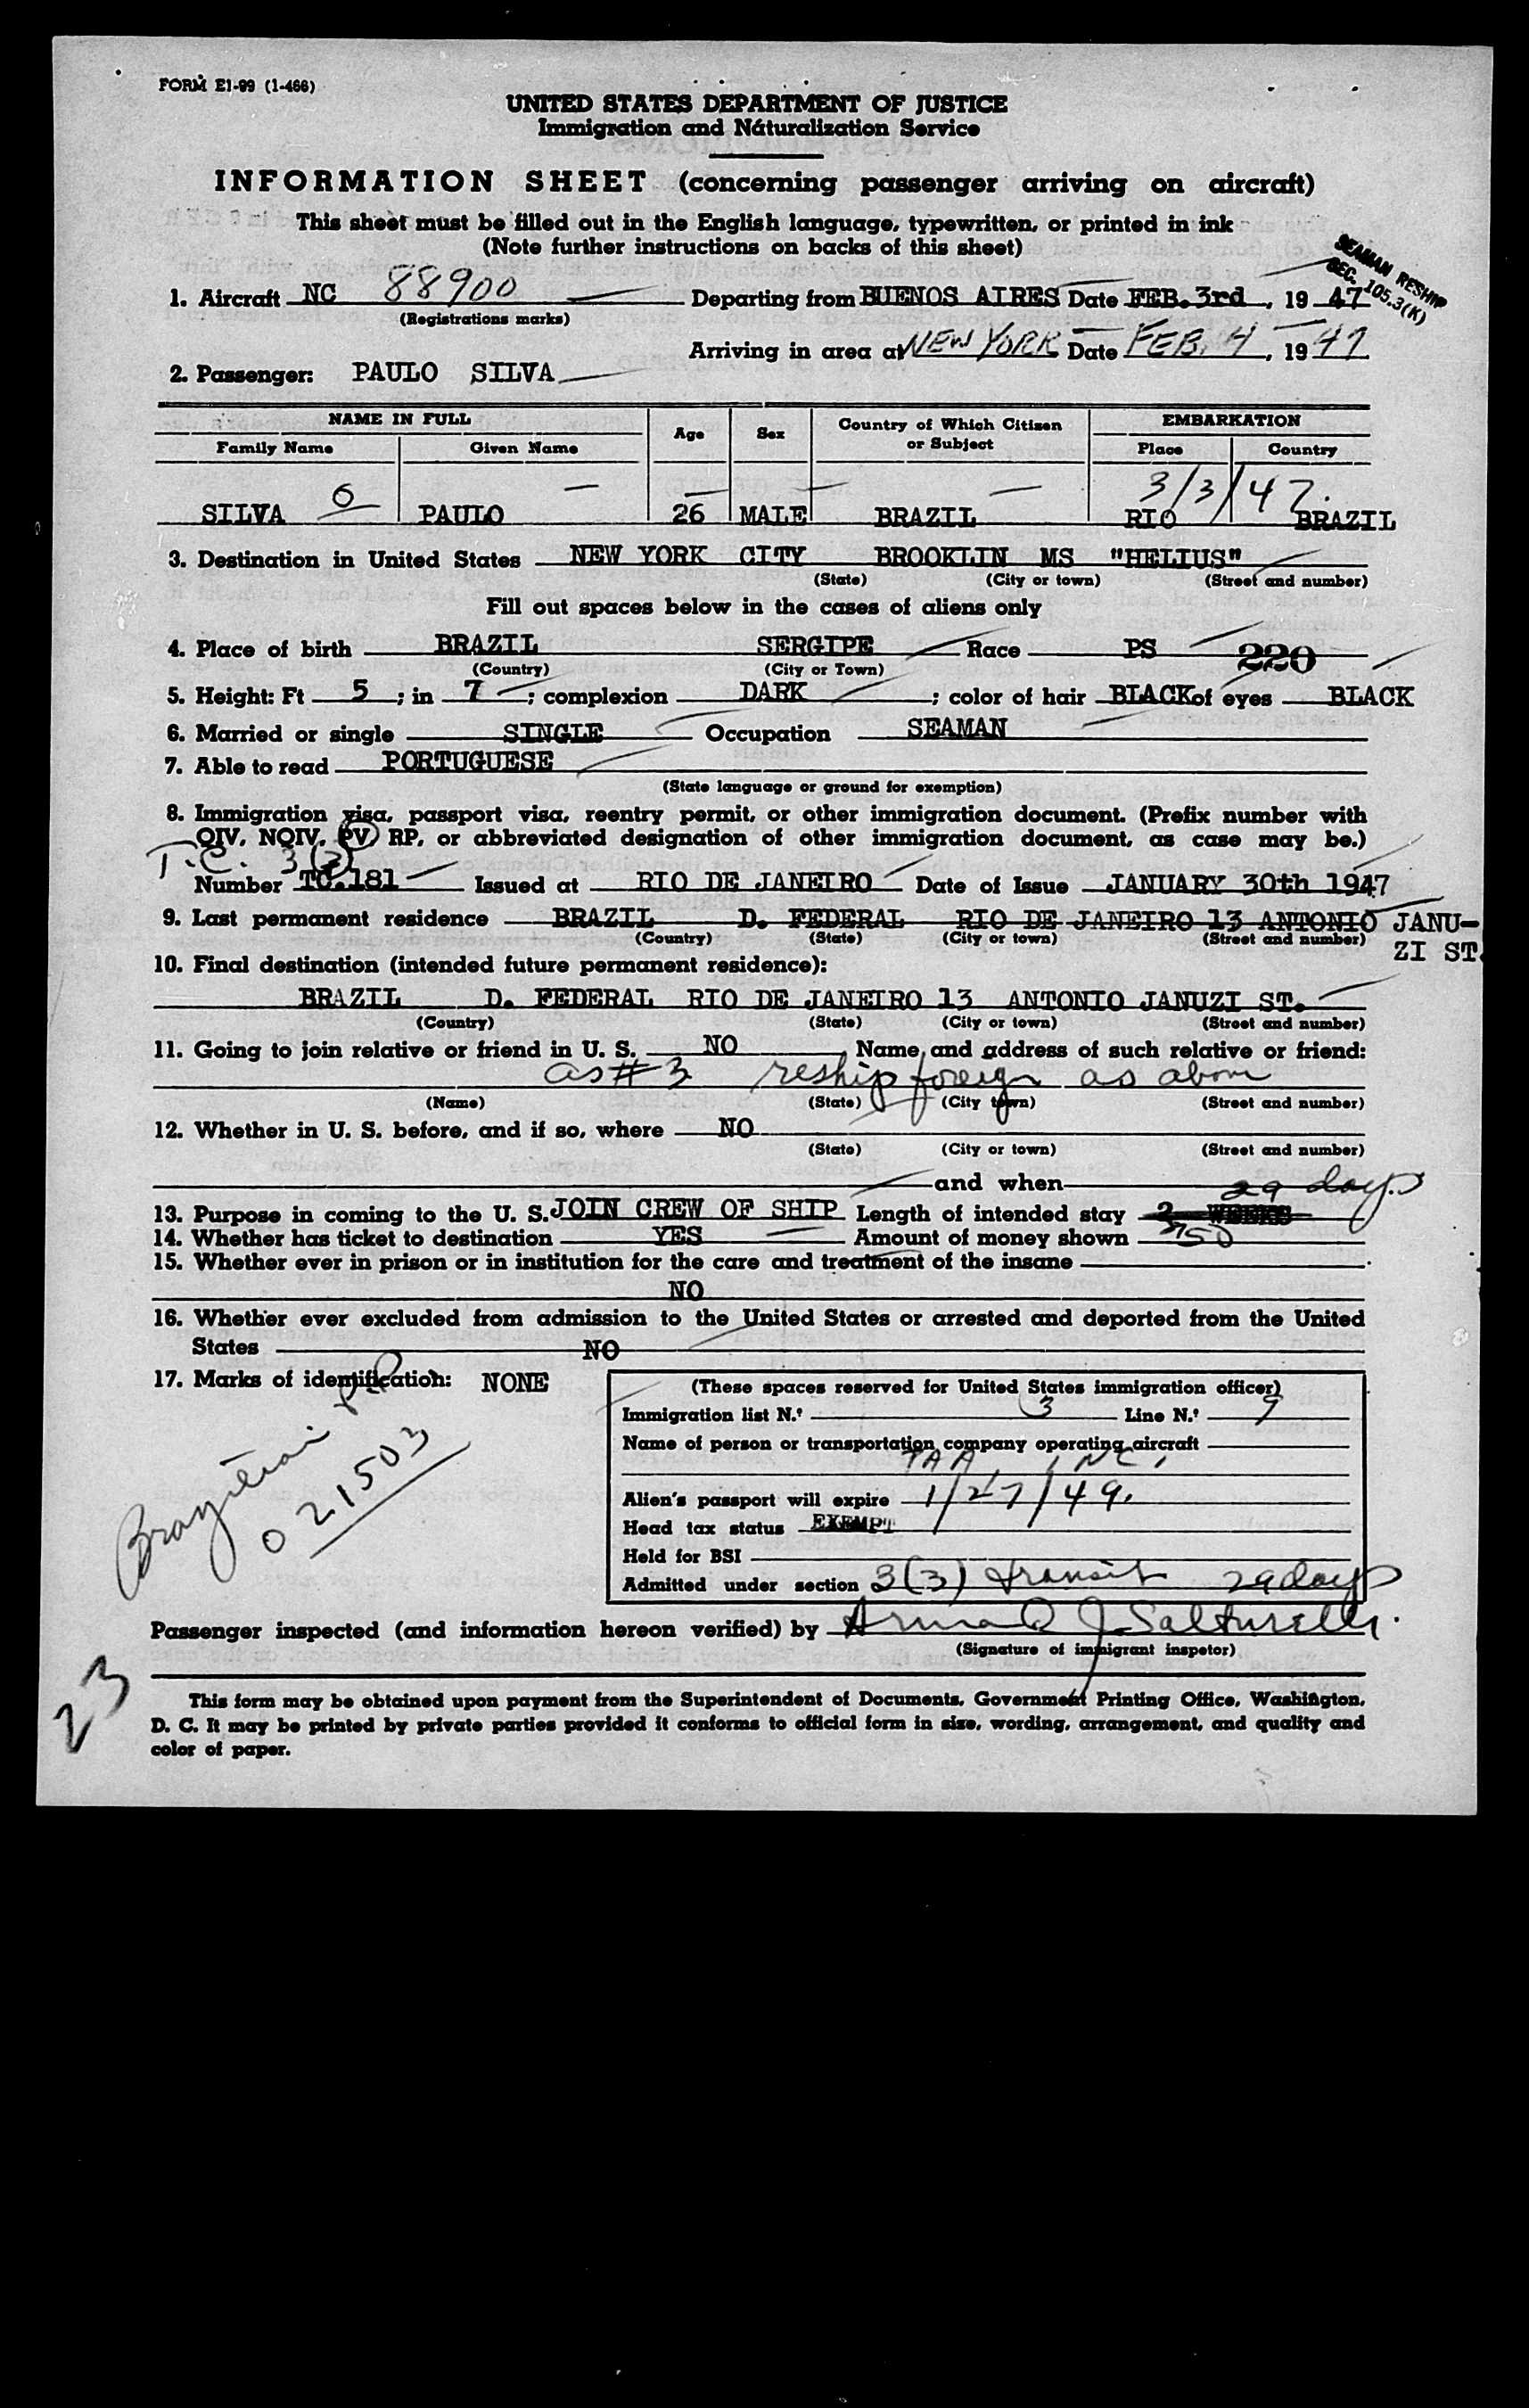 FORM E1-99 (1-466)
UNITED STATES DEPARTMENT OF JUSTICE
Immigration and Náturalization Service
INFORMATION SHEET (concerning passenger arriving on aircraft)
This sheet must be filled out in the English language, typewritten, or printed in ink
(Note further instructions on backs of this sheet)
SEAMAN RESHIP
SEC. 105.3(K)
1. Aircraft NC 88900 Departing from BUENOS AIRES Date FEB.3rd, 19 47
(Registrations marks)
Arriving in area at NEW YORK Date FEB. 4, 19 47
2. Passenger: PAULO SILVA
NAME IN FULL Age Sex Country of Which Citizen or Subject EMBARKATION
Family Name Given Name Place Country
6 3/3/47.
SILVA PAULO 26 MALE BRAZIL RIO BRAZIL
3. Destination in United States NEW YORK CITY BROOKLIN MS "HELIUS"
(State) (City or town) (Street and number)
Fill out spaces below in the cases of aliens only
4. Place of birth BRAZIL SERGIPE Race PS 220
(Country) (City or Town)
5. Height: Ft 5; in 7; complexion DARK; color of hair BLACK of eyes BLACK
6. Married or single SINGLE Occupation SEAMAN
7. Able to read PORTUGUESE
(State language or ground for exemption)
8. Immigration visa, passport visa, reentry permit, or other immigration document. (Prefix number with
QIV, NQIV, PV, RP, or abbreviated designation of other immigration document, as case may be.)
T.C. 3(3)
Number TC.181 Issued at RIO DE JANEIRO Date of Issue JANUARY 30th 1947
9. Last permanent residence BRAZIL D. FEDERAL RIO DE JANEIRO 13 ANTONIO JANU-
(Country) (State) (City or town) (Street and number) ZI ST.
10. Final destination (intended future permanent residence):
BRAZIL D. FEDERAL RIO DE JANEIRO 13 ANTONIO JANUZI ST.
(Country) (State) (City or town) (Street and number)
11. Going to join relative or friend in U. S. NO Name and address of such relative or friend:
as #3 reship foreign as above
(Name) (State) (City town) (Street and number)
12. Whether in U. S. before, and if so, where NO
(State) (City or town) (Street and number)
and when
29 days
13. Purpose in coming to the U. S. JOIN CREW OF SHIP Length of intended stay 2 WEEKS
14. Whether has ticket to destination YES Amount of money shown 50
15. Whether ever in prison or in institution for the care and treatment of the insane
NO
16. Whether ever excluded from admission to the United States or arrested and deported from the United
States NO
17. Marks of identification: NONE
(These spaces reserved for United States immigration officer)
Immigration list N.º 3 Line N.º 9
Name of person or transportation company operating aircraft
PAA, INC,
Alien's passport will expire 1/27/49.
Head tax status EXEMPT
Held for BSI
Admitted under section 3(3) transit 29 days
Brazilian PP
021503
Passenger inspected (and information hereon verified) by
(Signature of immigrant inspetor)
23
This form may be obtained upon payment from the Superintendent of Documents, Government Printing Office, Washington,
D. C. It may be printed by private parties provided it conforms to official form in size, wording, arrangement, and quality and
color of paper.